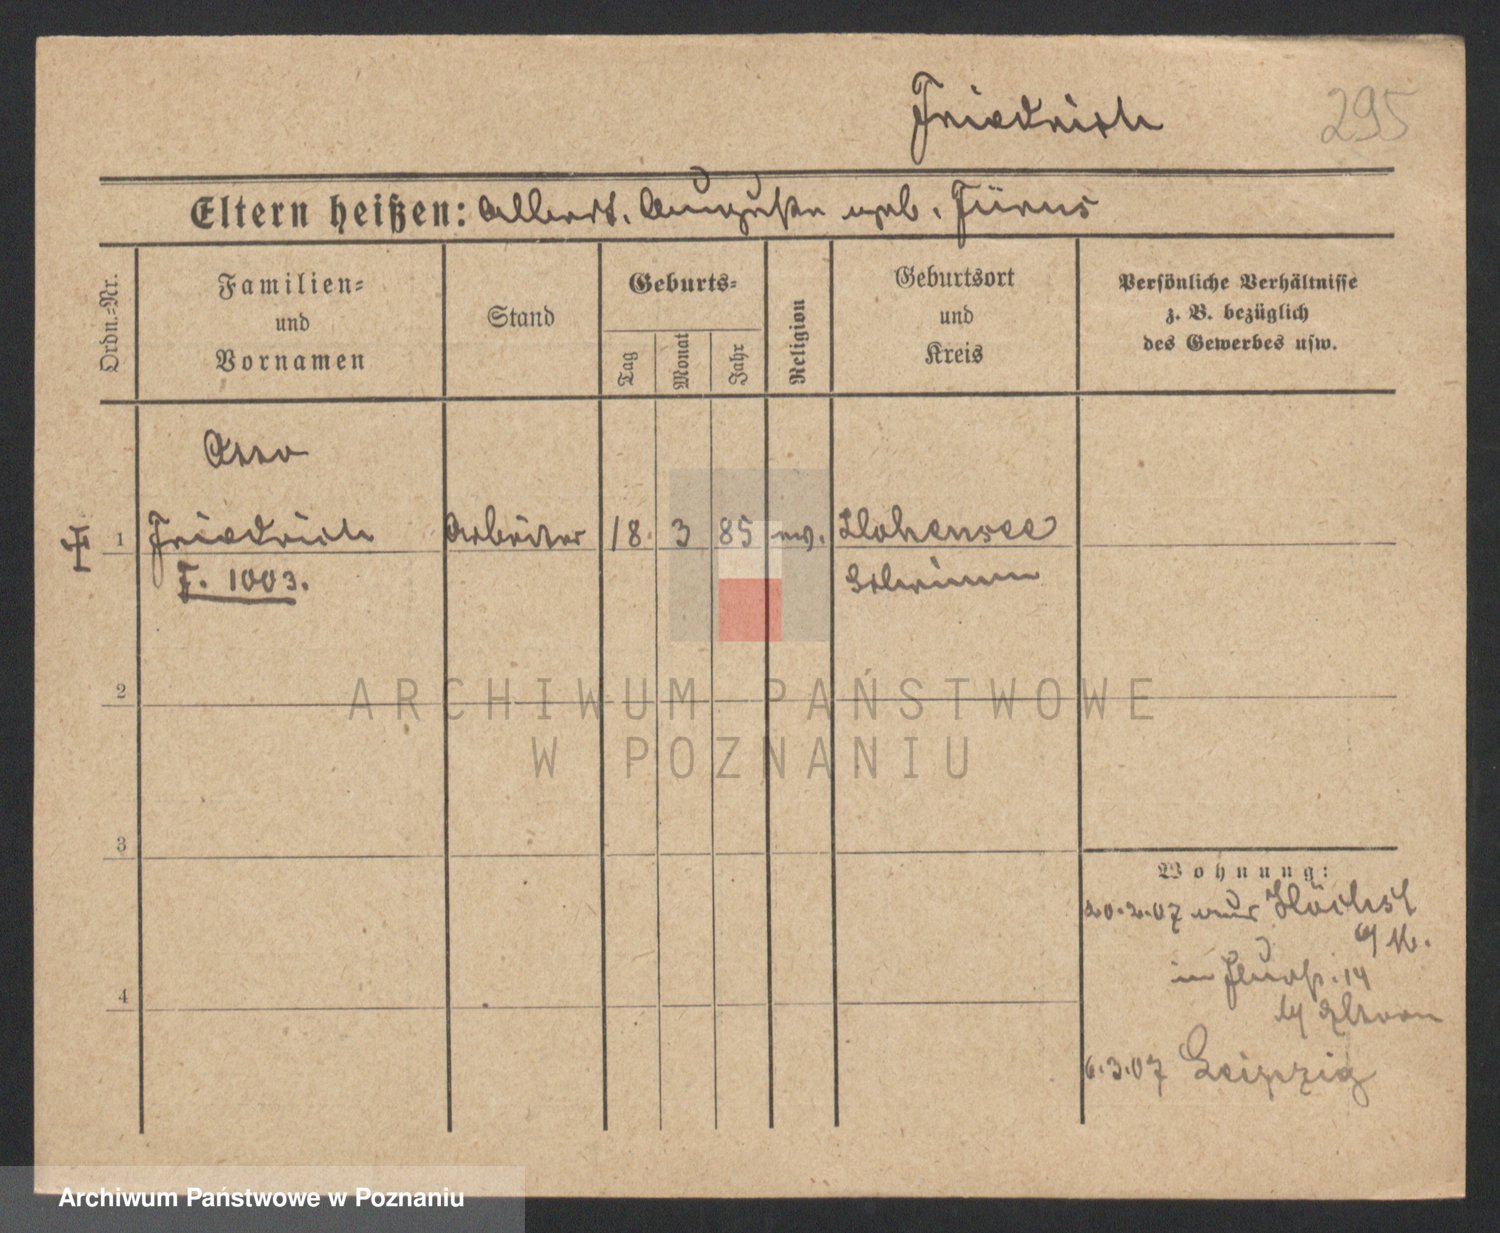 Friedrich
295
Eltern heißen: Albert. Auguste geb. Fürus
Ordn.-Nr.
Familien-
und
Vornamen
Stand
Geburts-
Tag
Monat
Jahr
Religion
Geburtsort
und
Kreis
Persönliche Verhältnisse
z. B. bezüglich
des Gewerbes usw.
Otto
1 Friedrich Arbeiter 18. 3 85 ev. Hohensee
F. 1003. Schrimm
2
ARCHIWUM PAŃSTWOWE
W POZNANIU
3
Wohnung:
20.2.07 aus Höchst
a/M.
in 14
b/
4
6.3.07 Leipzig
Archiwum Państwowe w Poznaniu